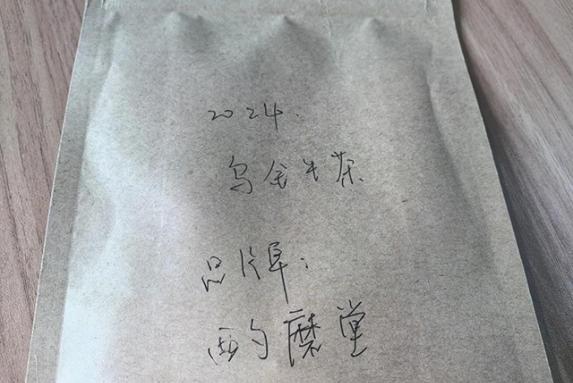 2024.
乌金牛茶
品牌：
酌磨堂